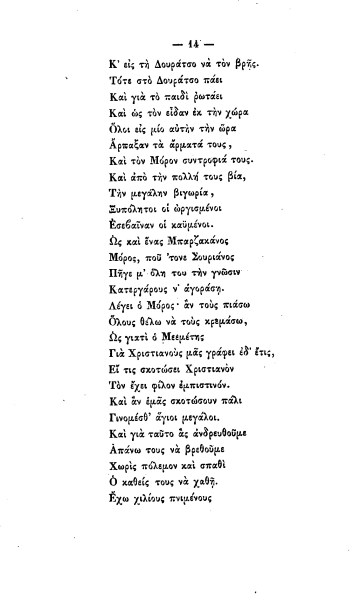 — 14 —
Κ' εἰς τὴ Δουράτσο νὰ τὸν βρῇς.
Τότε στὸ Δουράτσο πάει
Καὶ γιὰ τὸ παιδὶ ῥωτάει
Καὶ ὡς τὸν εἶδαν ἐκ τὴν χώρα
Ὅλοι εἰς μίο αὐτὴν τὴν ὥρα
Ἅρπαξαν τὰ ἄρματά τους,
Καὶ τὸν Μόρον συντροφιά τους.
Καὶ ἀπὸ τὴν πολλή τους βία,
Τὴν μεγάλην βιγωρία,
Ξυπόλητοι οἱ ὠργισμένοι
Ἐσεβαῖναν οἱ καϋμένοι.
Ὡς καὶ ἕνας Μπαρζακάνος
Μόρος, ποῦ 'τονε Σουριάνος
Πῆγε μ' ὅλη του τὴν γνῶσιν
Κατεργάρους ν' ἀγοράσῃ.
Λέγει ὁ Μόρος· ἂν τοὺς πιάσω
Ὅλους θέλω νὰ τοὺς κρεμάσω,
Ὡς γιατὶ ὁ Μεεμέτης
Γιὰ Χριστιανοὺς μᾶς γράφει ἐδ' ἔτις,
Εἴ τις σκοτώσει Χριστιανὸν
Τὸν ἔχει φίλον ἐμπιστινόν.
Καὶ ἂν ἐμᾶς σκοτώσουν πάλι
Γινομέσθ' ἅγιοι μεγάλοι.
Καὶ γιὰ ταῦτο ἂς ἀνδρευθοῦμε
Ἀπάνω τους νὰ βρεθοῦμε
Χωρὶς πόλεμον καὶ σπαθὶ
Ὁ καθείς τους νὰ χαθῇ.
Ἔχω χιλίους πνιμένους